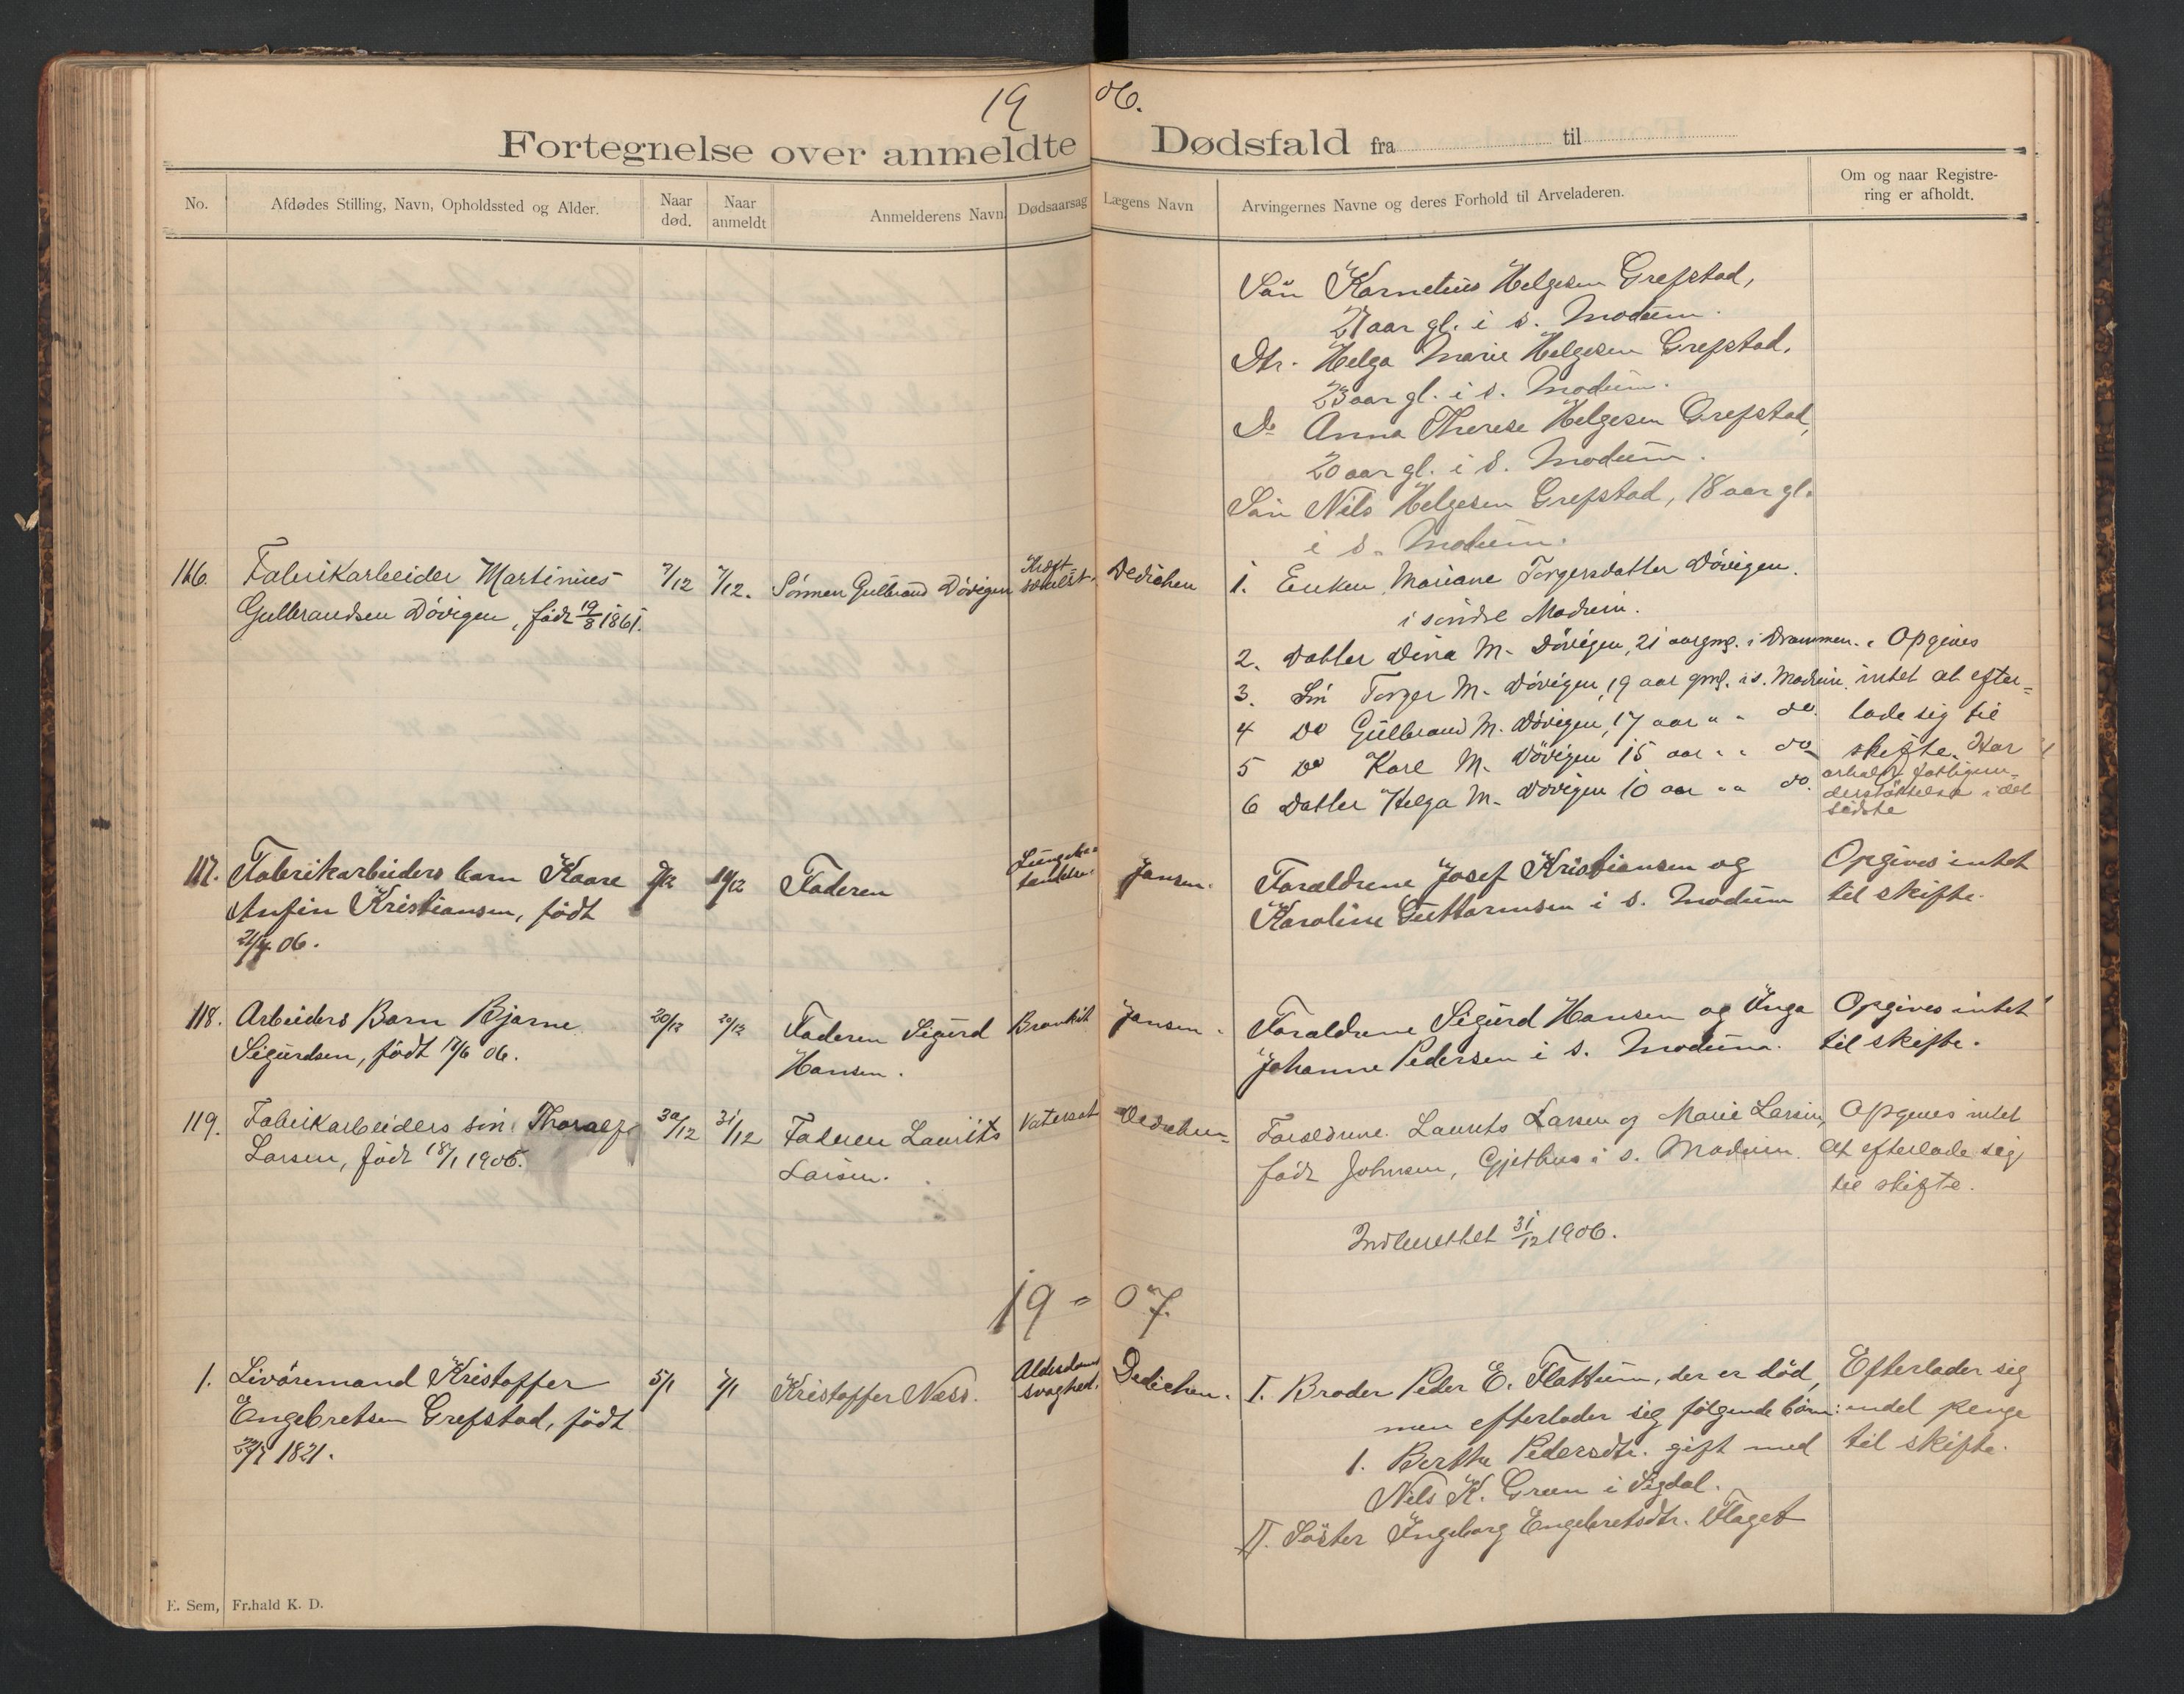 1906.
Fortegnelse over anmeldte Dødsfald fra til
No.
Afdødes Stilling, Navn, Opholdssted og Alder.
Naar død.
Naar anmeldt
Anmelderens Navn
Dødsaarsag
Lægens Navn
Arvingernes Navne og deres Forhold til Arveladeren.
Om og naar Registre-
ring er afholdt.
Sön Kornelius Helgesen Grefstad,
27 aar gl. i s. Modum.
Dtr. Helga Marie Helgesen Grefstad,
23 aar gl. i s. Modum.
Do Anna Therese Helgesen Grefstad,
20 aar gl. i s. Modum.
Sön Nils Helgesen Grefstad, 18 aar gl.
i s. Modum.
116.
Fabrikarbeider Martinius
Gulbrandsen Dövigen, födt 19/8 1861.
7/12
7/12.
Sönnen Gulbrand Dövigen
Kræft
Dedichen
1. Enken Mariane Torgersdatter Dövigen.
i söndre Modum.
2. Datter Dina M. Dövigen, 21 aar gml. i Drammen.
3. Sön Torger M. Dövigen, 19 aar gml. i s. Modum.
4 Do Gulbrand M. Dövigen, 17 aar " " do.
5 Do Karl M. Dövigen 15 aar " " do
6 Datter Helga M. Dövigen 10 aar " " do.
Opgives
intet at efter=
lade sig til
skifte. Har
erholdt fattigun=
derstöttelse i det
sidste
117.
Fabrikarbeiders barn Kaare
Anfin Kristiansen, födt
21/4 06.
9/12
10/12
Faderen
Lungebe=
tændelse.
Jansen.
Forældrene Josef Kristiansen og
Karoline Guttormsen i s. Modum
Opgives intet
til skifte.
118.
Arbeiders Barn Bjarne
Sigurdsen, födt 17/6 06.
20/12
20/12
Faderen Sigurd
Hansen.
Bronkit
Jansen.
Forældrene Sigurd Hansen og Inga
Johanne Pedersen i s. Modum.
Opgives intet
til skifte.
119.
Fabrikarbeiders sön Thoralf
Larsen, födt 18/1 1906.
30/12
31/12
Faderen Laurits
Larsen.
Vatersot
Dedichen
Forældrene Laurits Larsen og Marie Larsen,
födt Johnsen, Gjethus i s. Modum.
Opgives intet
at efterlade sig
til skifte.
Indberettet 31/12 1906.
19 = 07.
1.
Livöremand Kristoffer
Engebretsen Grefstad, födt
22/7 1821.
5/1
7/1
Kristoffer Næss.
Alderdoms
svaghed.
Dedichen.
I. Broder Peder E. Flattum, der er död,
men efterlader sig fölgende börn:
1. Berthe Pedersdtr. gift med
Nils K. Green i Sigdal.
II. Söster Ingeborg Engebretsdtr. Flaget
Efterlader sig
endel penge
til skifte.
E. Sem, Fr.hald K. D.